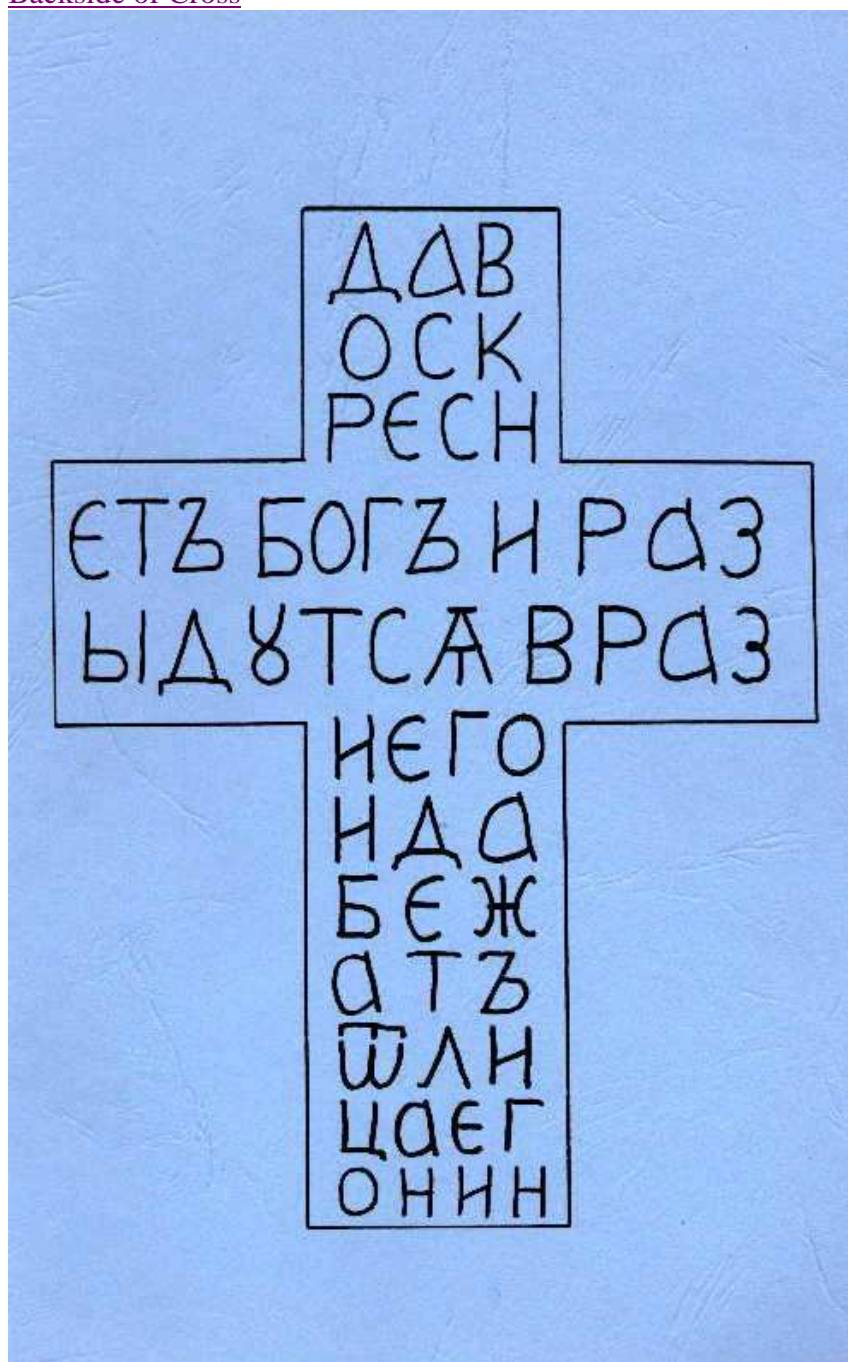 Backside of Cross
ДАВ
ОСК
РЄСН
ЄТЪ БОГЪ И РАЗ
ЫДꙊТСѦ ВРАЗ
ИЄГО
ИДА
БЄЖ
АТЪ
ѾЛИ
ЦАЄГ
ОНИН